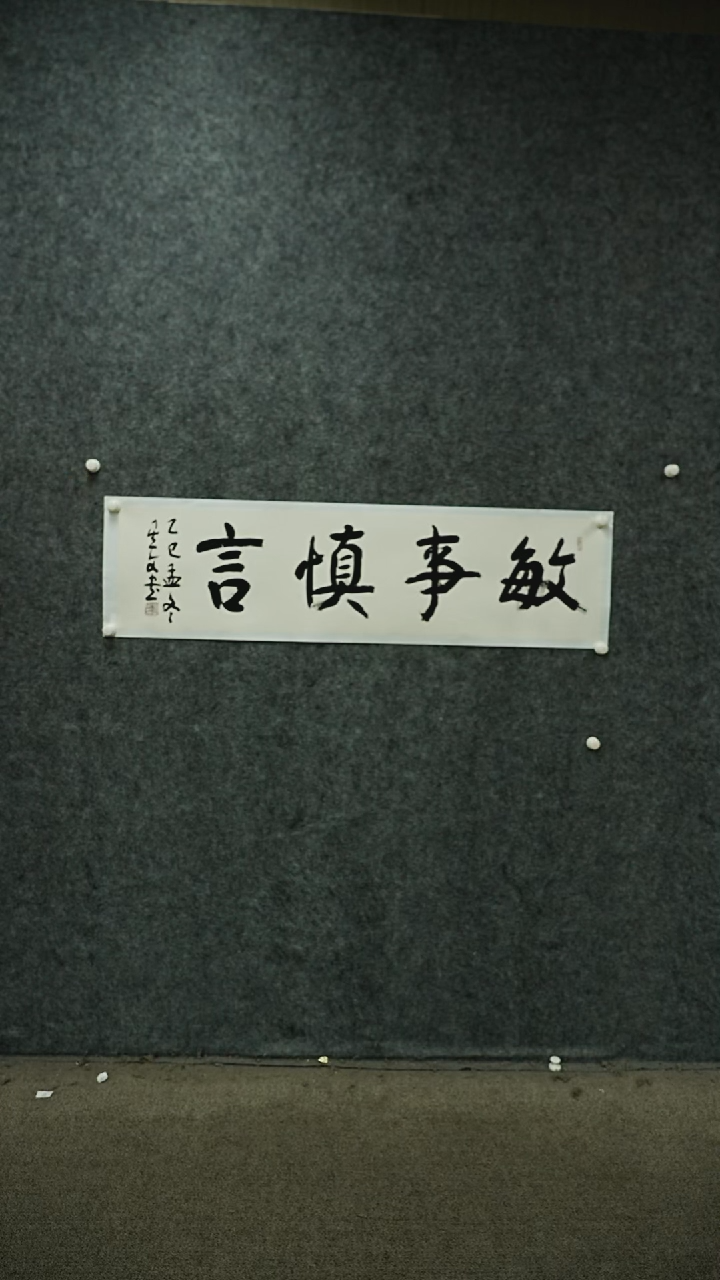 敏事慎言
乙巳孟冬
书